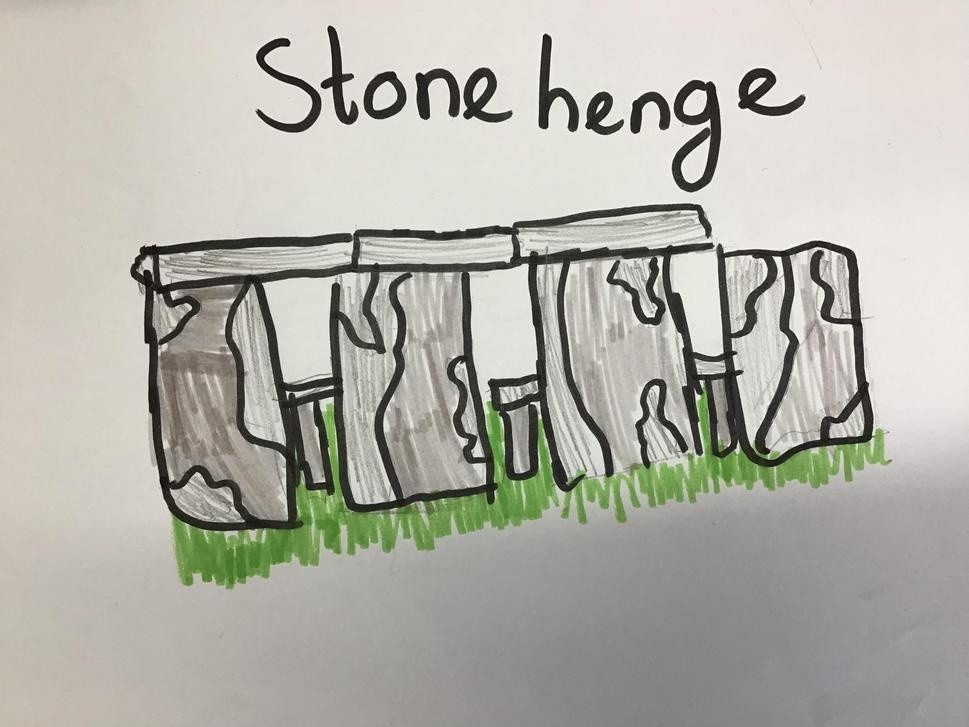 Stone henge